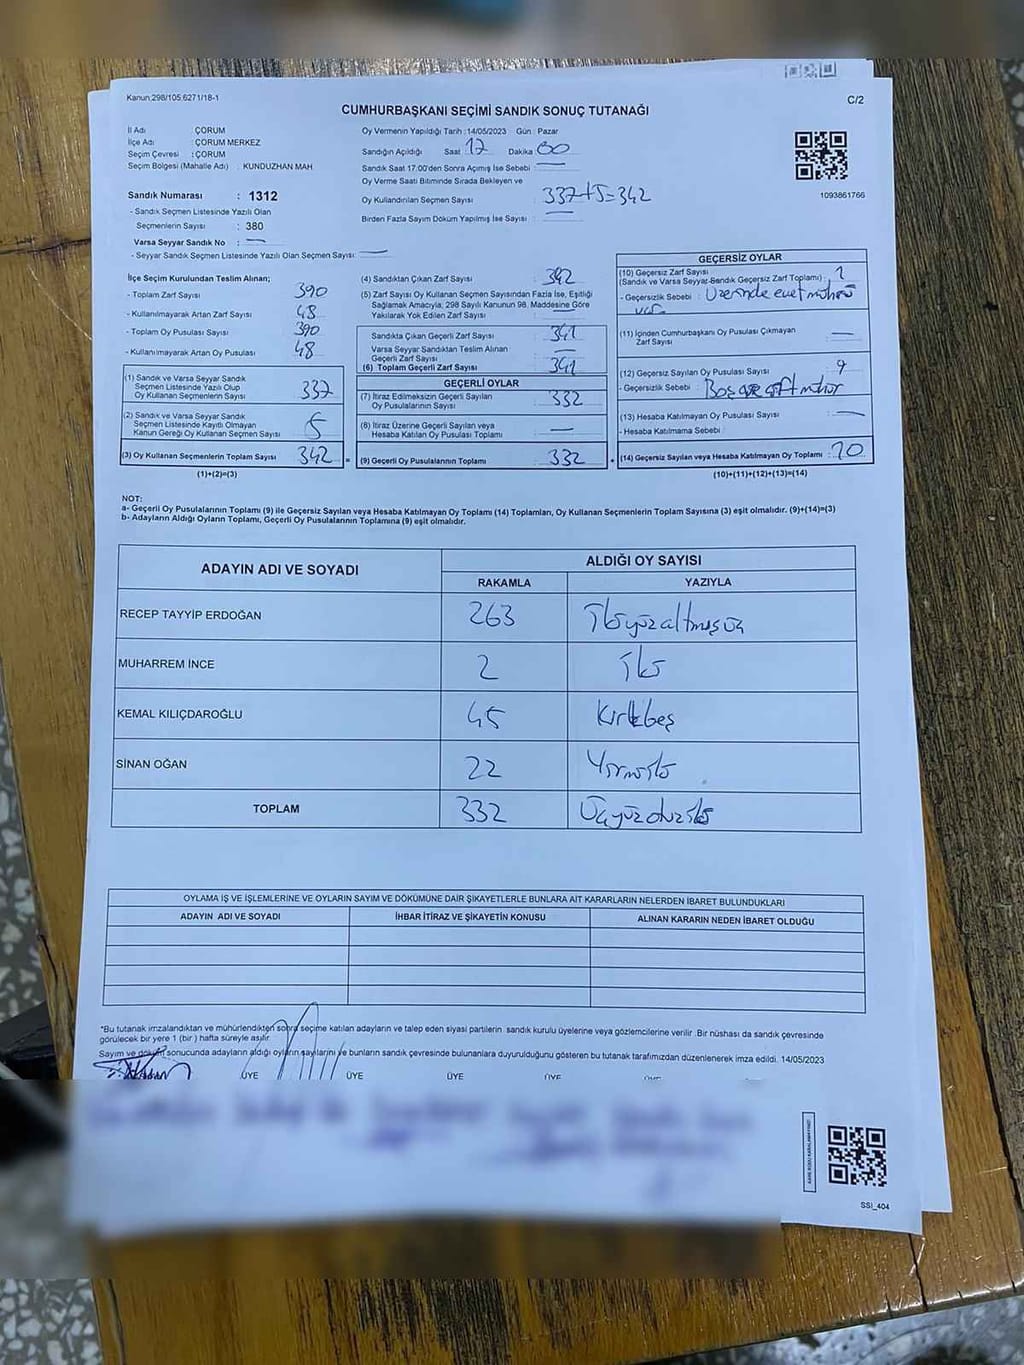 Kanun:298/105,6271/18-1
C/2
CUMHURBAŞKANI SEÇİMİ SANDIK SONUÇ TUTANAĞI
İl Adı : ÇORUM
İlçe Adı : ÇORUM MERKEZ
Seçim Çevresi : ÇORUM
Seçim Bölgesi (Mahalle Adı) : KUNDUZHAN MAH
Sandık Numarası : 1312
- Sandık Seçmen Listesinde Yazılı Olan
Seçmenlerin Sayısı : 380
Varsa Seyyar Sandık No : —
- Seyyar Sandık Listesinde Yazılı Olan Seçmen Sayısı: —
Oy Vermenin Yapıldığı Tarih :14/05/2023 Gün : Pazar
Sandığın Açıldığı Saat : 17 Dakika 00
Sandık Saat 17:00'den Sonra Açımış İse Sebebi : —
Oy Verme Saati Bitiminde Sırada Bekleyen ve
Oy Kullandırılan Seçmen Sayısı : 337+5=342
Birden Fazla Sayım Döküm Yapılmış İse Sayısı : —
1093861766
İlçe Seçim Kurulundan Teslim Alınan;
- Toplam Zarf Sayısı 390
- Kullanılmayarak Artan Zarf Sayısı 48
- Toplam Oy Pusulası Sayısı 390
- Kullanılmayarak Artan Oy Pusulası 48
(1) Sandık ve Varsa Seyyar Sandık
Seçmen Listesinde Yazılı Olup
Oy Kullanan Seçmenlerin Sayısı : 337
(2) Sandık ve Varsa Seyyar Sandık
Seçmen Listesinde Kayıtlı Olmayan
Kanun Gereği Oy Kullanan Seçmen Sayısı : 5
(3) Oy Kullanan Seçmenlerin Toplam Sayısı : 342
(1)+(2)=(3)
(4) Sandıktan Çıkan Zarf Sayısı : 342
(5) Zarf Sayısı Oy Kullanan Seçmen Sayısından Fazla İse, Eşitliği
Sağlamak Amacıyla; 298 Sayılı Kanunun 98. Maddesine Göre
Yakılarak Yok Edilen Zarf Sayısı : —
Sandıkta Çıkan Geçerli Zarf Sayısı : 341
Varsa Seyyar Sandıktan Teslim Alınan
Geçerli Zarf Sayısı : —
(6) Toplam Geçerli Zarf Sayısı : 341
GEÇERLİ OYLAR
(7) İtiraz Edilmeksizin Geçerli Sayılan
Oy Pusulalarının Sayısı : 332
(8) İtiraz Üzerine Geçerli Sayılan veya
Hesaba Katılan Oy Pusulası Toplamı : —
(9) Geçerli Oy Pusulalarının Toplamı : 332
GEÇERSİZ OYLAR
(10) Geçersiz Zarf Sayısı
(Sandık ve Varsa Seyyar Sandık Geçersiz Zarf Toplamı) : 1
- Geçersizlik Sebebi : Üzerinde evet mührü
var
(11) İçinden Cumhurbaşkanı Oy Pusulası Çıkmayan
Zarf Sayısı : —
(12) Geçersiz Sayılan Oy Pusulası Sayısı : 9
- Geçersizlik Sebebi : Boş ve çift mühür
(13) Hesaba Katılmayan Oy Pusulası Sayısı : —
- Hesaba Katılmama Sebebi :
(14) Geçersiz Sayılan veya Hesaba Katılmayan Oy Toplamı : 10
(10)+(11)+(12)+(13)=(14)
NOT:
a- Geçerli Oy Pusulalarının Toplamı (9) ile Geçersiz Sayılan veya Hesaba Katılmayan Oy Toplamı (14) Toplamları, Oy Kullanan Seçmenlerin Toplam Sayısına (3) eşit olmalıdır. (9)+(14)=(3)
b- Adayların Aldığı Oyların Toplamı, Geçerli Oy Pusulalarının Toplamına (9) eşit olmalıdır.
ADAYIN ADI VE SOYADI
ALDIĞI OY SAYISI
RAKAMLA YAZIYLA
RECEP TAYYİP ERDOĞAN 263 İkiyüzaltmışüç
MUHARREM İNCE 2 iki
KEMAL KILIÇDAROĞLU 45 Kırkbeş
SİNAN OĞAN 22 Yirmiiki
TOPLAM 332 Üçyüzotuziki
OYLAMA İŞ VE İŞLEMLERİNE VE OYLARIN SAYIM VE DÖKÜMÜNE DAİR ŞİKAYETLERLE BUNLARA AİT KARARLARIN NELERDEN İBARET BULUNDUKLARI
ADAYIN ADI VE SOYADI İHBAR İTİRAZ VE ŞİKAYETİN KONUSU ALINAN KARARIN NEDEN İBARET OLDUĞU
*Bu tutanak imzalandıktan ve mühürlendikten sonra seçime katılan adayların ve talep eden siyasi partilerin sandık kurulu üyelerine veya gözlemcilerine verilir .Bir nüshası da sandık çevresinde
görülecek bir yere 1 (bir ) hafta süreyle asılır.
Sayım ve döküm sonucunda adayların aldığı oyların sayılarını ve bunların sandık çevresinde bulunanlara duyurulduğunu gösteren bu tutanak tarafımızdan düzenlenerek imza edildi. 14/05/2023
ÜYE ÜYE ÜYE ÜYE ÜYE
SSI_404